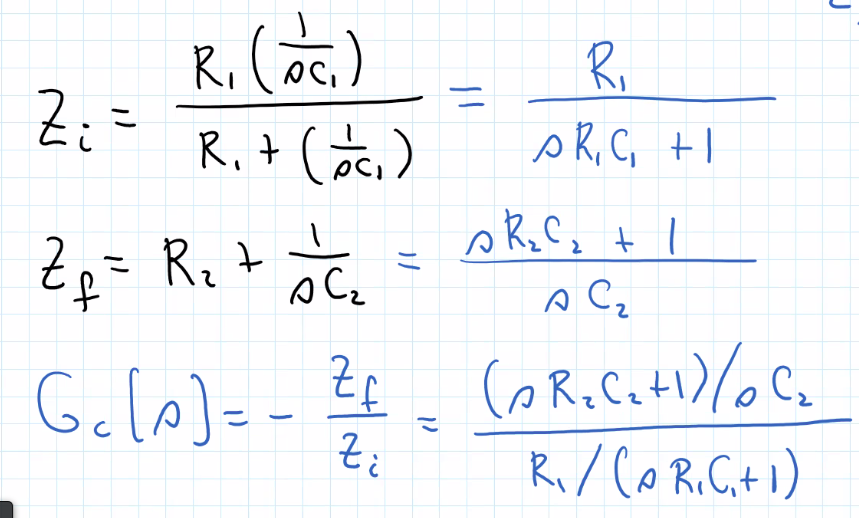 Z_i = R_1 (1/(sC_1)) / (R_1 + (1/(sC_1))) = R_1 / (s R_1 C_1 + 1)
Z_f = R_2 + 1/(sC_2) = (s R_2 C_2 + 1) / (s C_2)
G_c(s) = - Z_f / Z_i = ((s R_2 C_2 + 1) / s C_2) / (R_1 / (s R_1 C_1 + 1))